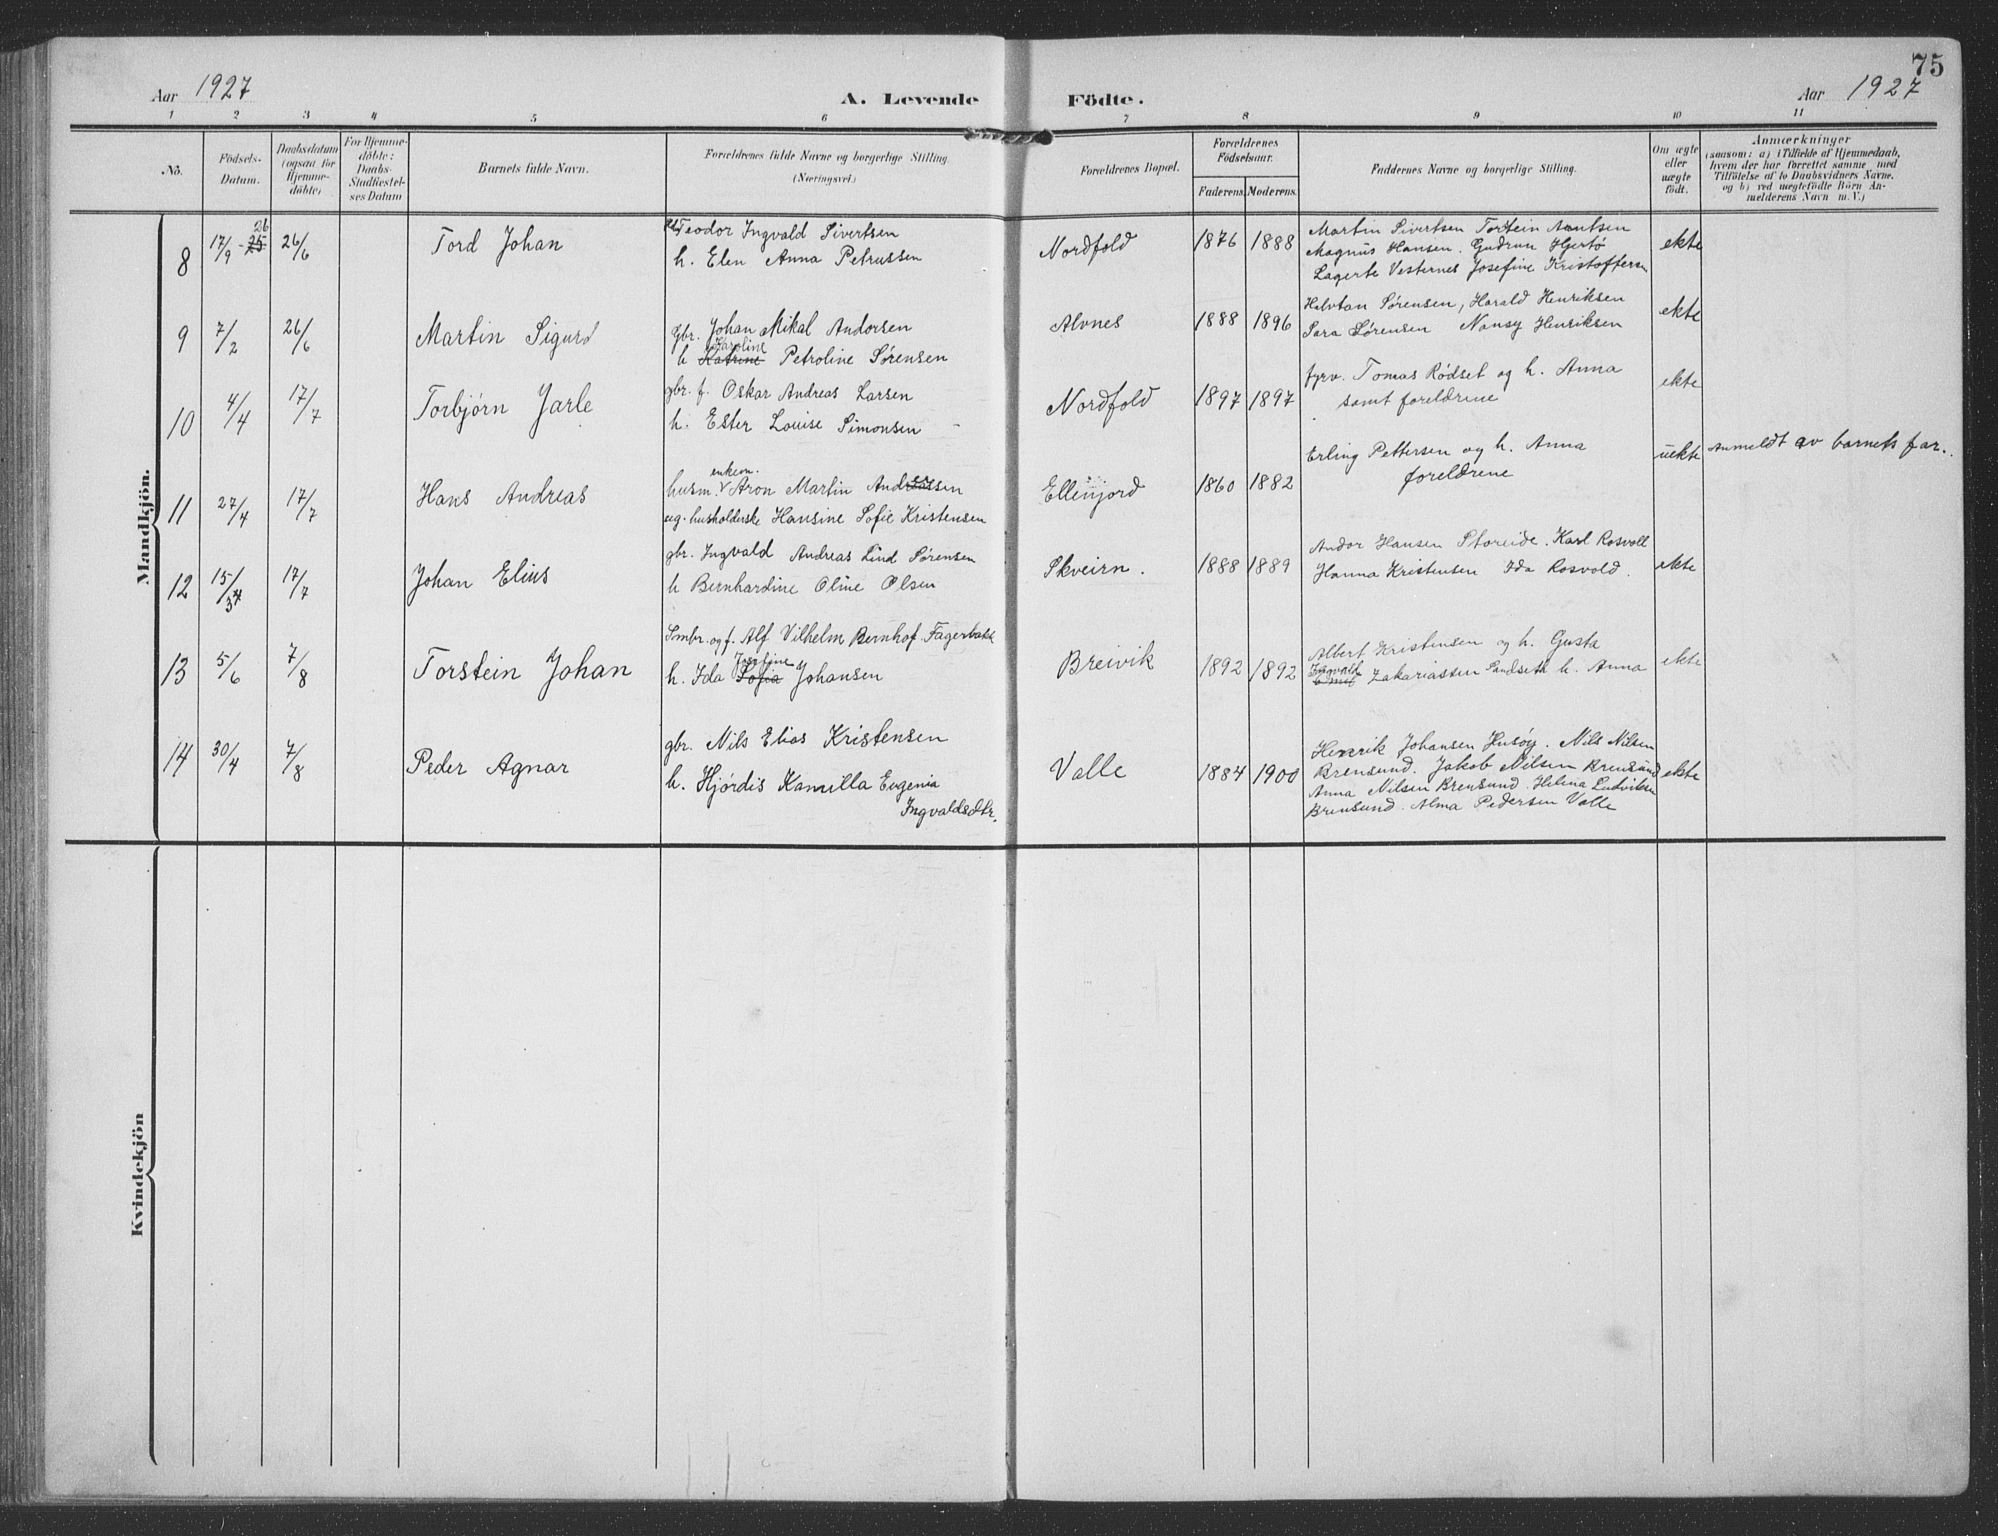 75
Aar 1927 A. Levende Födte. Aar 1927
1 2 3 4 5 6 7 8 9 10 11
No.
Födsels-
Datum.
Daabsdatum
(ogsaa for
Hjemme-
döbte)
For Hjemme-
döbte:
Daabs-
Stadfæstel-
ses Datum
Barnets fulde Navn.
Forældrenes fulde Navne og borgerlige Stilling.
(Næringsvei.)
Forældrenes Bopæl.
Forældrenes
Födselsaar.
Faderens. Moderens.
Faddernes Navne og borgerlige Stilling.
Om ægte
eller
uægte
födt.
Anmærkninger
(saasom: a) i Tilfælde af Hjemmedaab,
hvem der har forrettet samme med
Tilföielse af to Daabsvidners Navne.
og b) ved uegtefödte Börn An-
melderens Navn m. V.)
Mandkjön.
8 17/9 - 25 26 26/6 Tord Johan
Teodor Ingvald Sivertsen
h. Elen Anna Petrussen
Nordfold 1876 1888
Martin Sivertsen Torstein
Magnus Hansen. Gudrun Hjertø
Lagerte Vesternes Josefine Kristoffersen
ekte
9 7/2 26/6 Martin Sigurd
gbr. Johan Mikal Andorsen
Karoline
h Katrine Petroline Sørensen
Alvnes 1888 1896
Halvtan Sørensen, Harald Henriksen
Sara Sørensen Nansy Henriksen
ekte
10 4/4 17/7 Torbjørn Jarle
gbr. f. Oskar Andreas Larsen
h. Ester Louise Simonsen
Nordfold 1897 1897
fyrv. Tomas Rødset og h. Anna
samt foreldrene
ekte
11 27/4 17/7 Hans Andreas
enkem.
husm. Aron Martin
ug. husholderske Hansine Sofie Kristensen
Ellenjord 1860 1882
Erling Pettersen og h. Anna
foreldrene
uekte Anmeldt av barnets far.
12 15/34 17/7 Johan Elius
gbr. Ingvald Andreas Lind Sørensen
h Bernhardine Oline Olsen
Skveirn. 1888 1889
Andor Hansen Storeide. Karl Rosvoll
Hanna Kristensen Ida Rosvold.
ekte
13 5/6 7/8 Torstein Johan
Smbr. og f. Alf Vilhelm Bernhof Fagerbakk
Iverfine
h. Ida Sofia Johansen
Breivik 1892 1892
Albert Kristensen og h. Gusta
Ingvald Zakariassen Sandseth h. Anna
ekte
14 30/4 7/8 Peder Agnar
gbr. Nils Elias Kristensen
h. Hjørdis Kamilla Eugenia
Ingvaldsdtr.
Valle 1884 1900
Henrik Johansen Husøy. Nils Nilsen
Brensund. Jakob Nilsen Brensund
Anna Nilsen Brensund. Helina Ludviksen
Brensund. Alma Pedersen Valle
ekte
Kvindekjön